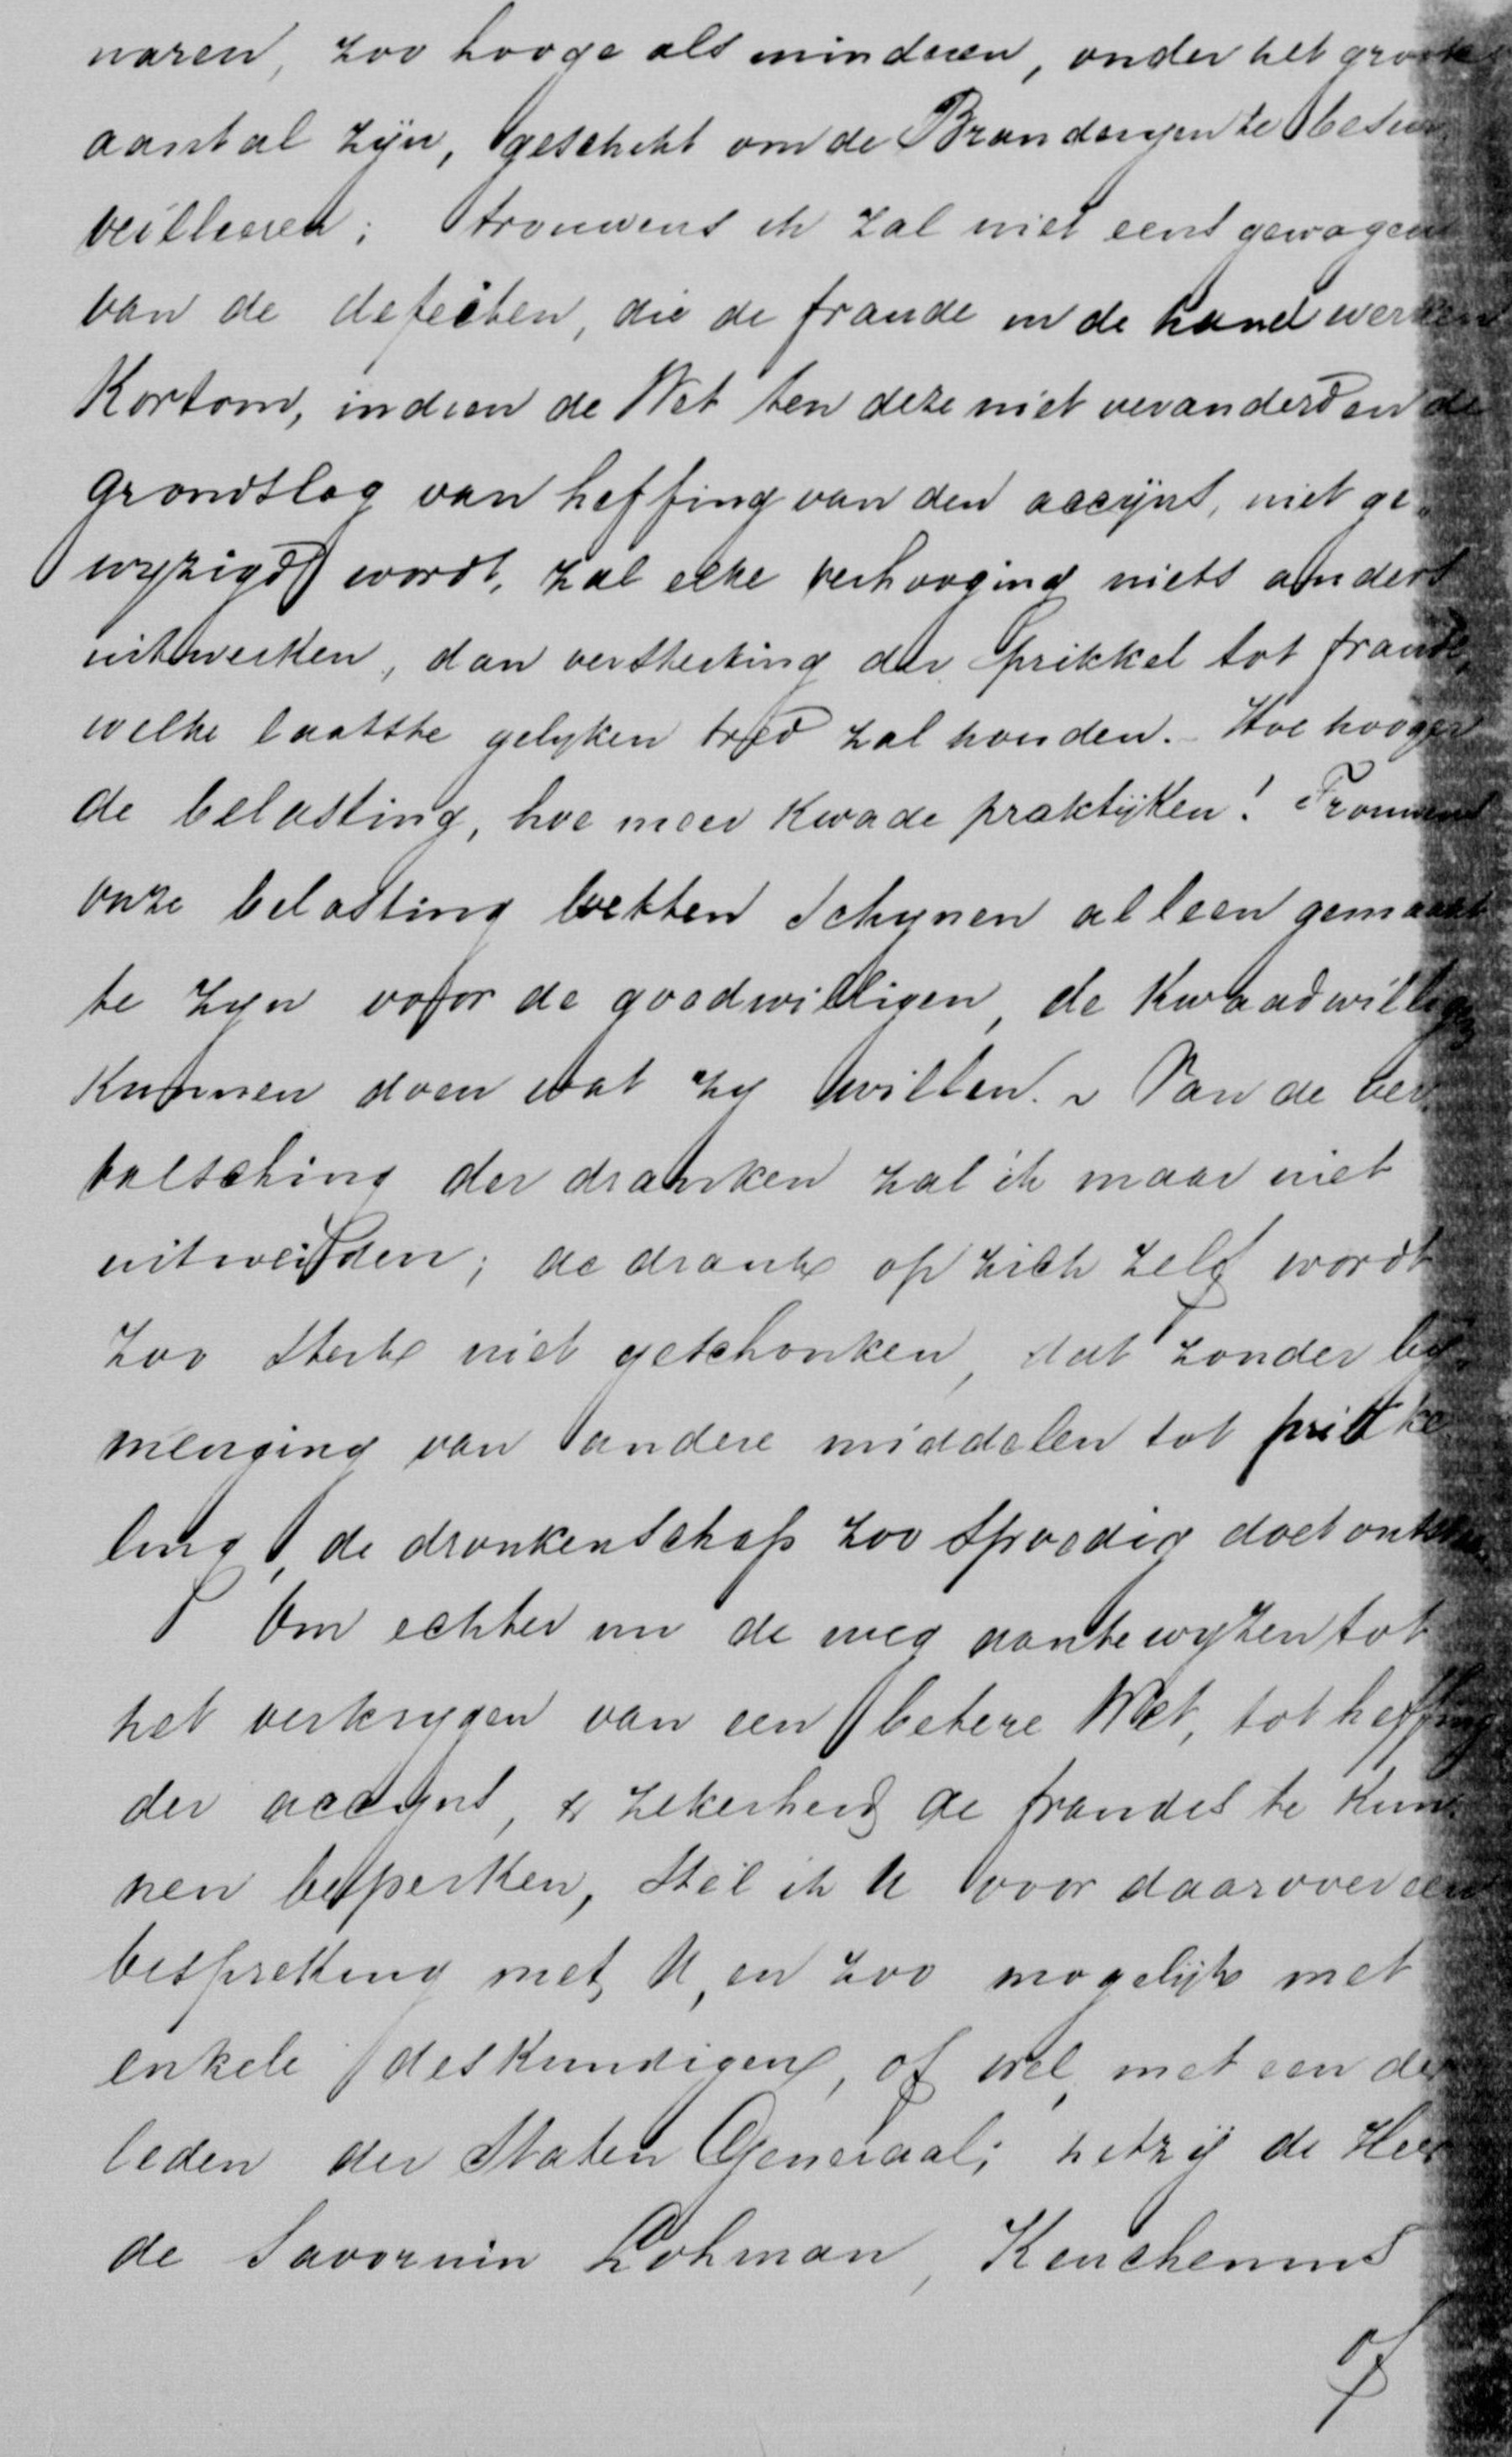 naren, zoo hooge als minderen, onder het groote
aantal zijn, geschikt om de Branderijen te besur
veilleeren; trouwens ik zal niet eens gewagen
van de defecten, die de fraude in de hand werken
Kortom, indien de Wet ten deze niet veranderd en de
grondslag van heffing van den accijns, niet ge-
wyzigd wordt, zal elke verhooging niets anders
uitwerken, dan versterking der prikkel tot fraude,
welke laatste gelyken tred zal houden. - Hoe hooger
de belasting, hoe meer kwade praktijken! Trouwens
onze belasting wetten schynen alleen gemaakt
te zyn voor de goedwilligen, de kwaadwilligen
kunnen doen wat zy willen. ~ Van de ver-
valsching der dranken zal ik maar niet
uitweiden; de drank op zich zelf wordt
zoo sterk niet geschonken, dat zonder by-
menging van andere middelen tot prikke-
ling, de dronkenschap zoo spoedig doet ontstaan.
Om echter nu de weg aantewyzen tot
het verkrygen van een betere Wet, tot heffing
der accyns, & zekerheid de fraudes te kun-
nen beperken, stel ik U voor daarover een
bespreking met U, en zoo mogelijk met
enkele deskundigen, of wel, met een der
leden der Staten Generaal; hetzij de Heer
de Savornin Lohman, Keuchenius
of